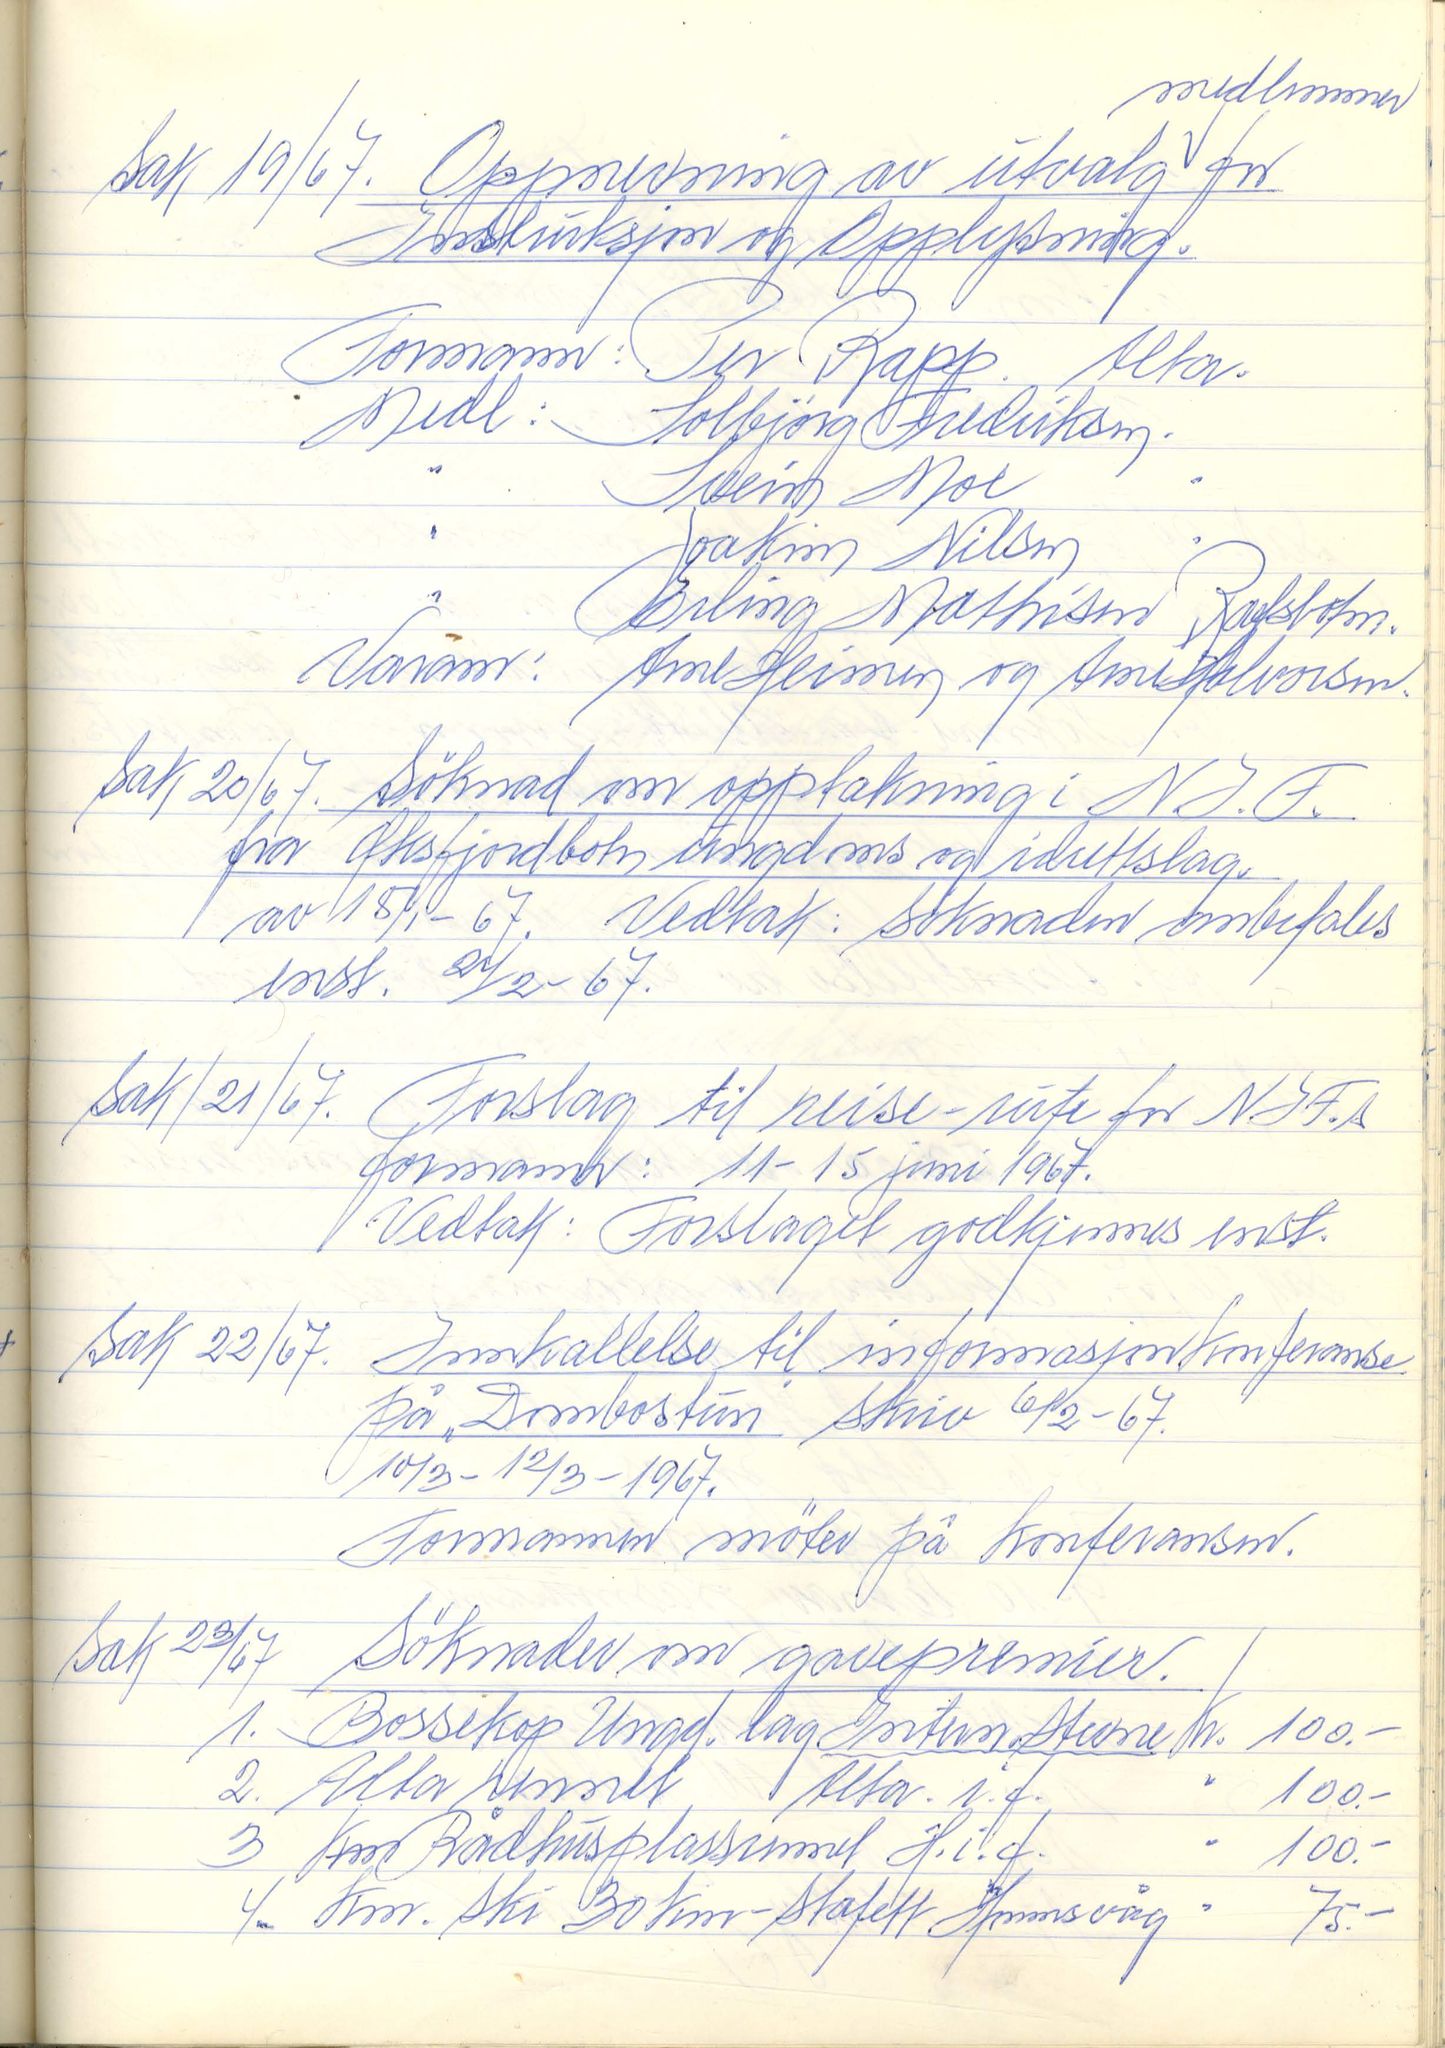 medlemmer
Sak 19/67. Oppnevning av utvalg for
Instruksjon og Opplysning.
Formann: Per Rapp. Alta.
Medl: Solbjørg Fredriksen.
" Svein Moe "
" Joakim Nilsen "
" Erling Mathisen
Varam: Arne Heimen og Arne Halvorsen.
Sak 20/67. Söknad om opptakning i N.I.F.
fra Øksfjordbotn ungdoms og idrettslag.
av 18/1-67. Vedtak: Söknaden anbefales
enst. 24/2-67.
Sak 21/67. Forslag til reise-rute for N.I.F.s
formann: 11-15 juni 1967.
Vedtak: Forslaget godkjennes enst.
Sak 22/67. Innkallelse til informasjonkonferanse
på "Dombostun" skriv 6/2-67.
10/3-12/3-1967.
Formannen möter på konferansen.
Sak 23/67 Söknader om gavepremier.
1. Bossekop Ungd. lag Intern. Stevne kr. 100.-
2. Alta rennet Alta. i.f. " 100.-
3 Km Rådhusplassrennet H.i.f. " 100.-
4. Km. ski 30 km-Stafett Honnsvåg " 75.-